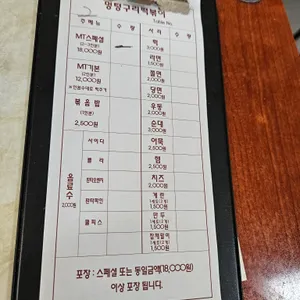 멍텅구리떡볶이
Table No.
주 메 뉴 수 량 사 리 수 량
MT스페셜
(2~3인분)
18,000원
떡
라면
2,500원
MT기본
(2인분)
12,000원
쫄면
2,000원
당면
2,000원
볶 음 밥
(1인분)
2,500원
우동
2,000원
순대
2,000원
음료수
2,000원
사 이 다
어묵
2,500원
콜 라
햄
2,500원
환타오렌지
치즈
2,000원
환타파인
계 란
1,500원
쿨피스
만 두
1,500원
1,500원
포장 : 스페셜 또는 동일금액(18,000원)
이상 포장 됩니다.